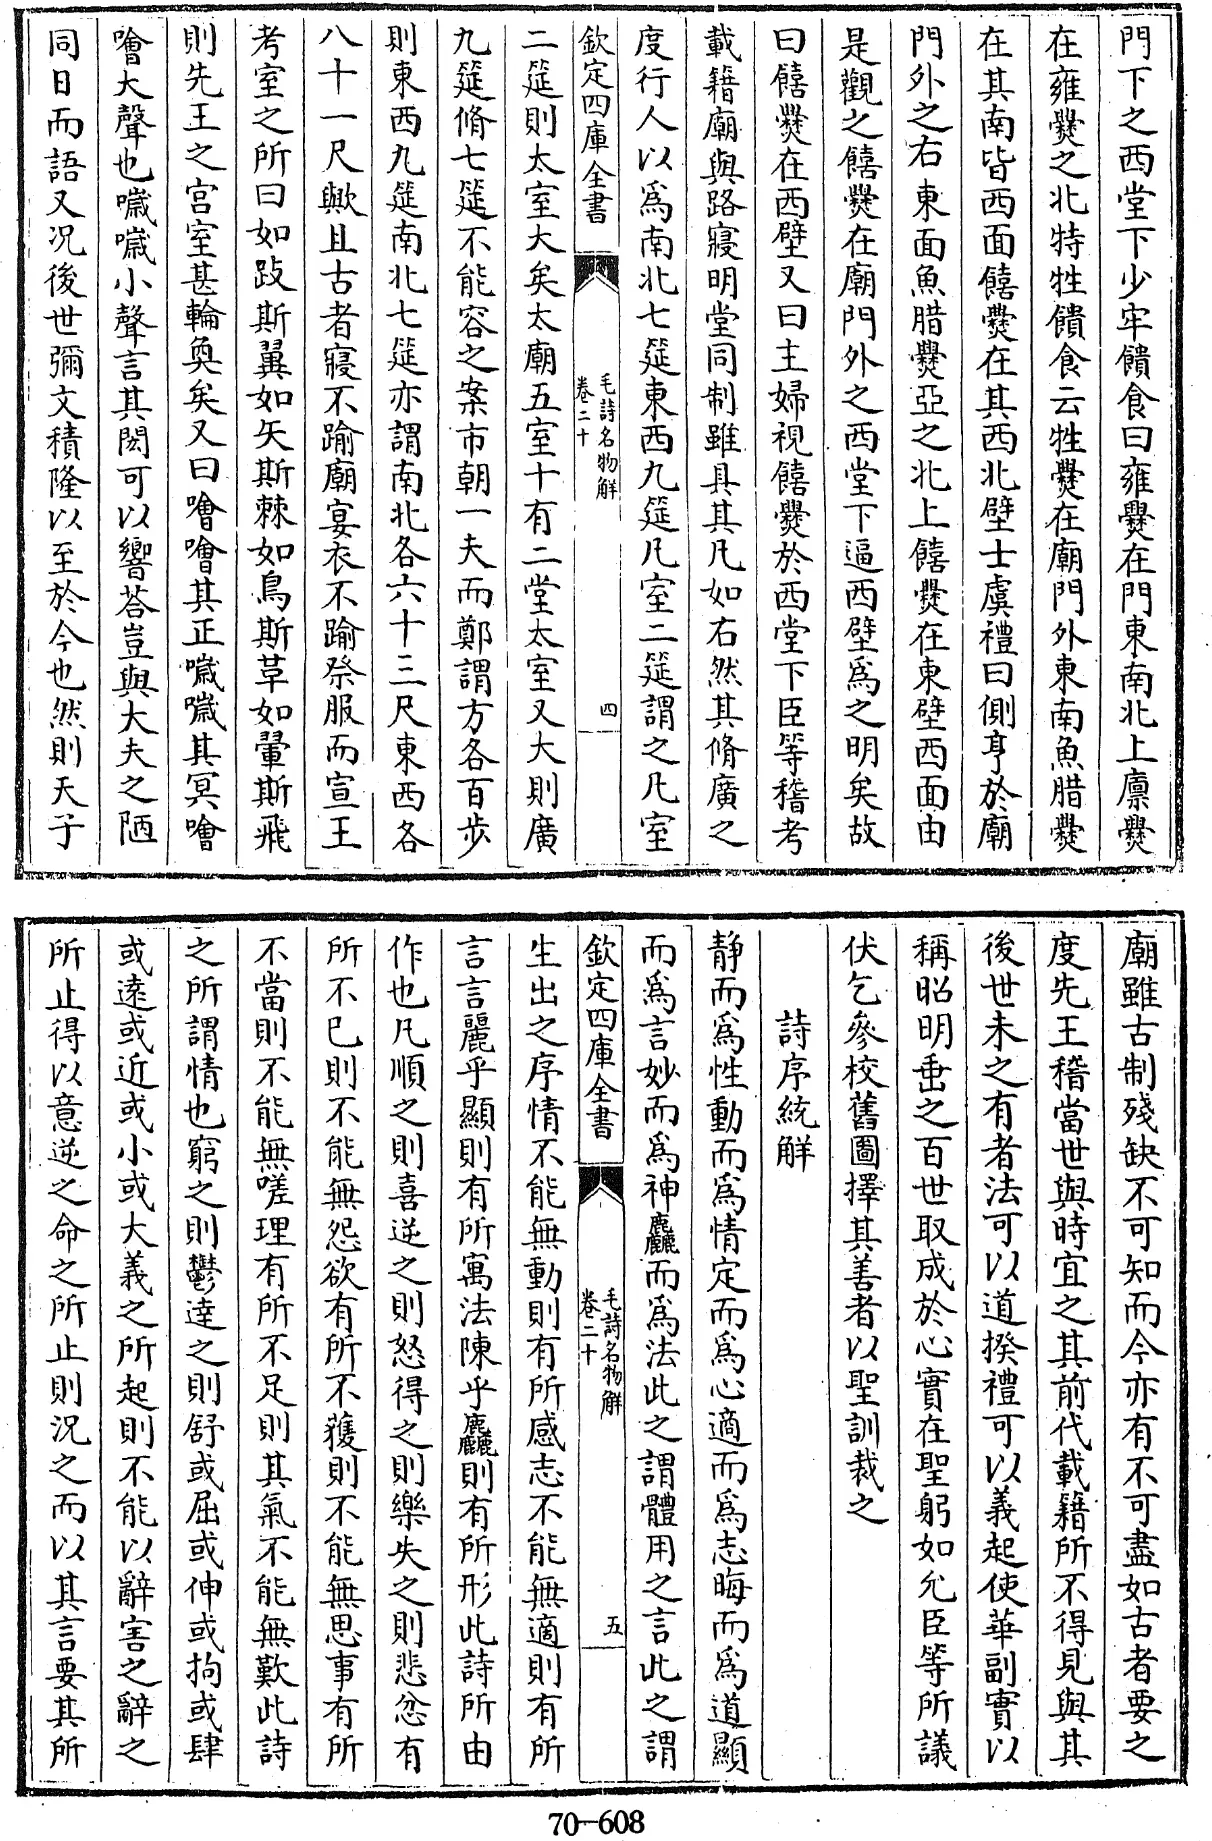 門下之西堂下少牢饋食曰雍爨在門東南北上廪爨
在雍爨之北特牲饋食云牲爨在廟門外東南魚腊爨
在其南皆西面饎爨在其西北壁士虞禮曰側亨於廟
門外之右東面魚腊爨亞之北上饎爨在東壁西面由
是觀之饎爨在廟門外之西堂下逼西壁爲之明矣故
曰饎爨在西壁又曰主婦視饎爨於西堂下臣等稽考
載籍廟與路寢明堂同制雖具其凡如右然其脩廣之
度行人以爲南北七筵東西九筵凡室二筵謂之凡室
欽定四庫全書
毛詩名物解
卷二十
四
二筵則太室大矣太廟五室十有二堂太室又大則廣
九筵脩七筵不能容之案市朝一夫而鄭謂方各百步
則東西九筵南北七筵亦謂南北各六十三尺東西各
八十一尺歟且古者寢不踰廟宴衣不踰祭服而宣王
考室之所曰如跂斯翼如矢斯棘如鳥斯革如翬斯飛
則先王之宮室甚輪奐矣又曰噲噲其正噦噦其冥噲
噲大聲也噦噦小聲言其閎可以響荅豈與大夫之陋
同日而語又况後世彌文積隆以至於今也然則天子
廟雖古制殘缺不可知而今亦有不可盡如古者要之
度先王稽當世與時宜之其前代載籍所不得見與其
後世未之有者法可以道揆禮可以義起使華副實以
稱昭明垂之百世取成於心實在聖躬如允臣等所議
伏乞參校舊圖擇其善者以聖訓裁之
詩序統解
靜而爲性動而爲情定而爲心適而爲志晦而爲道顯
而爲言妙而爲神麤而爲法此之謂體用之言此之謂
欽定四庫全書
毛詩名物解
卷二十
五
生出之序情不能無動則有所感志不能無適則有所
言言麗乎顯則有所寓法陳乎麤則有所形此詩所由
作也凡順之則喜逆之則怒得之則樂失之則悲忿有
所不已則不能無怨欲有所不獲則不能無思事有所
不當則不能無嗟理有所不足則其氣不能無歎此詩
之所謂情也窮之則鬱達之則舒或屈或伸或拘或肆
或遠或近或小或大義之所起則不能以辭害之辭之
所止得以意逆之命之所止則況之而以其言要其所
70-608